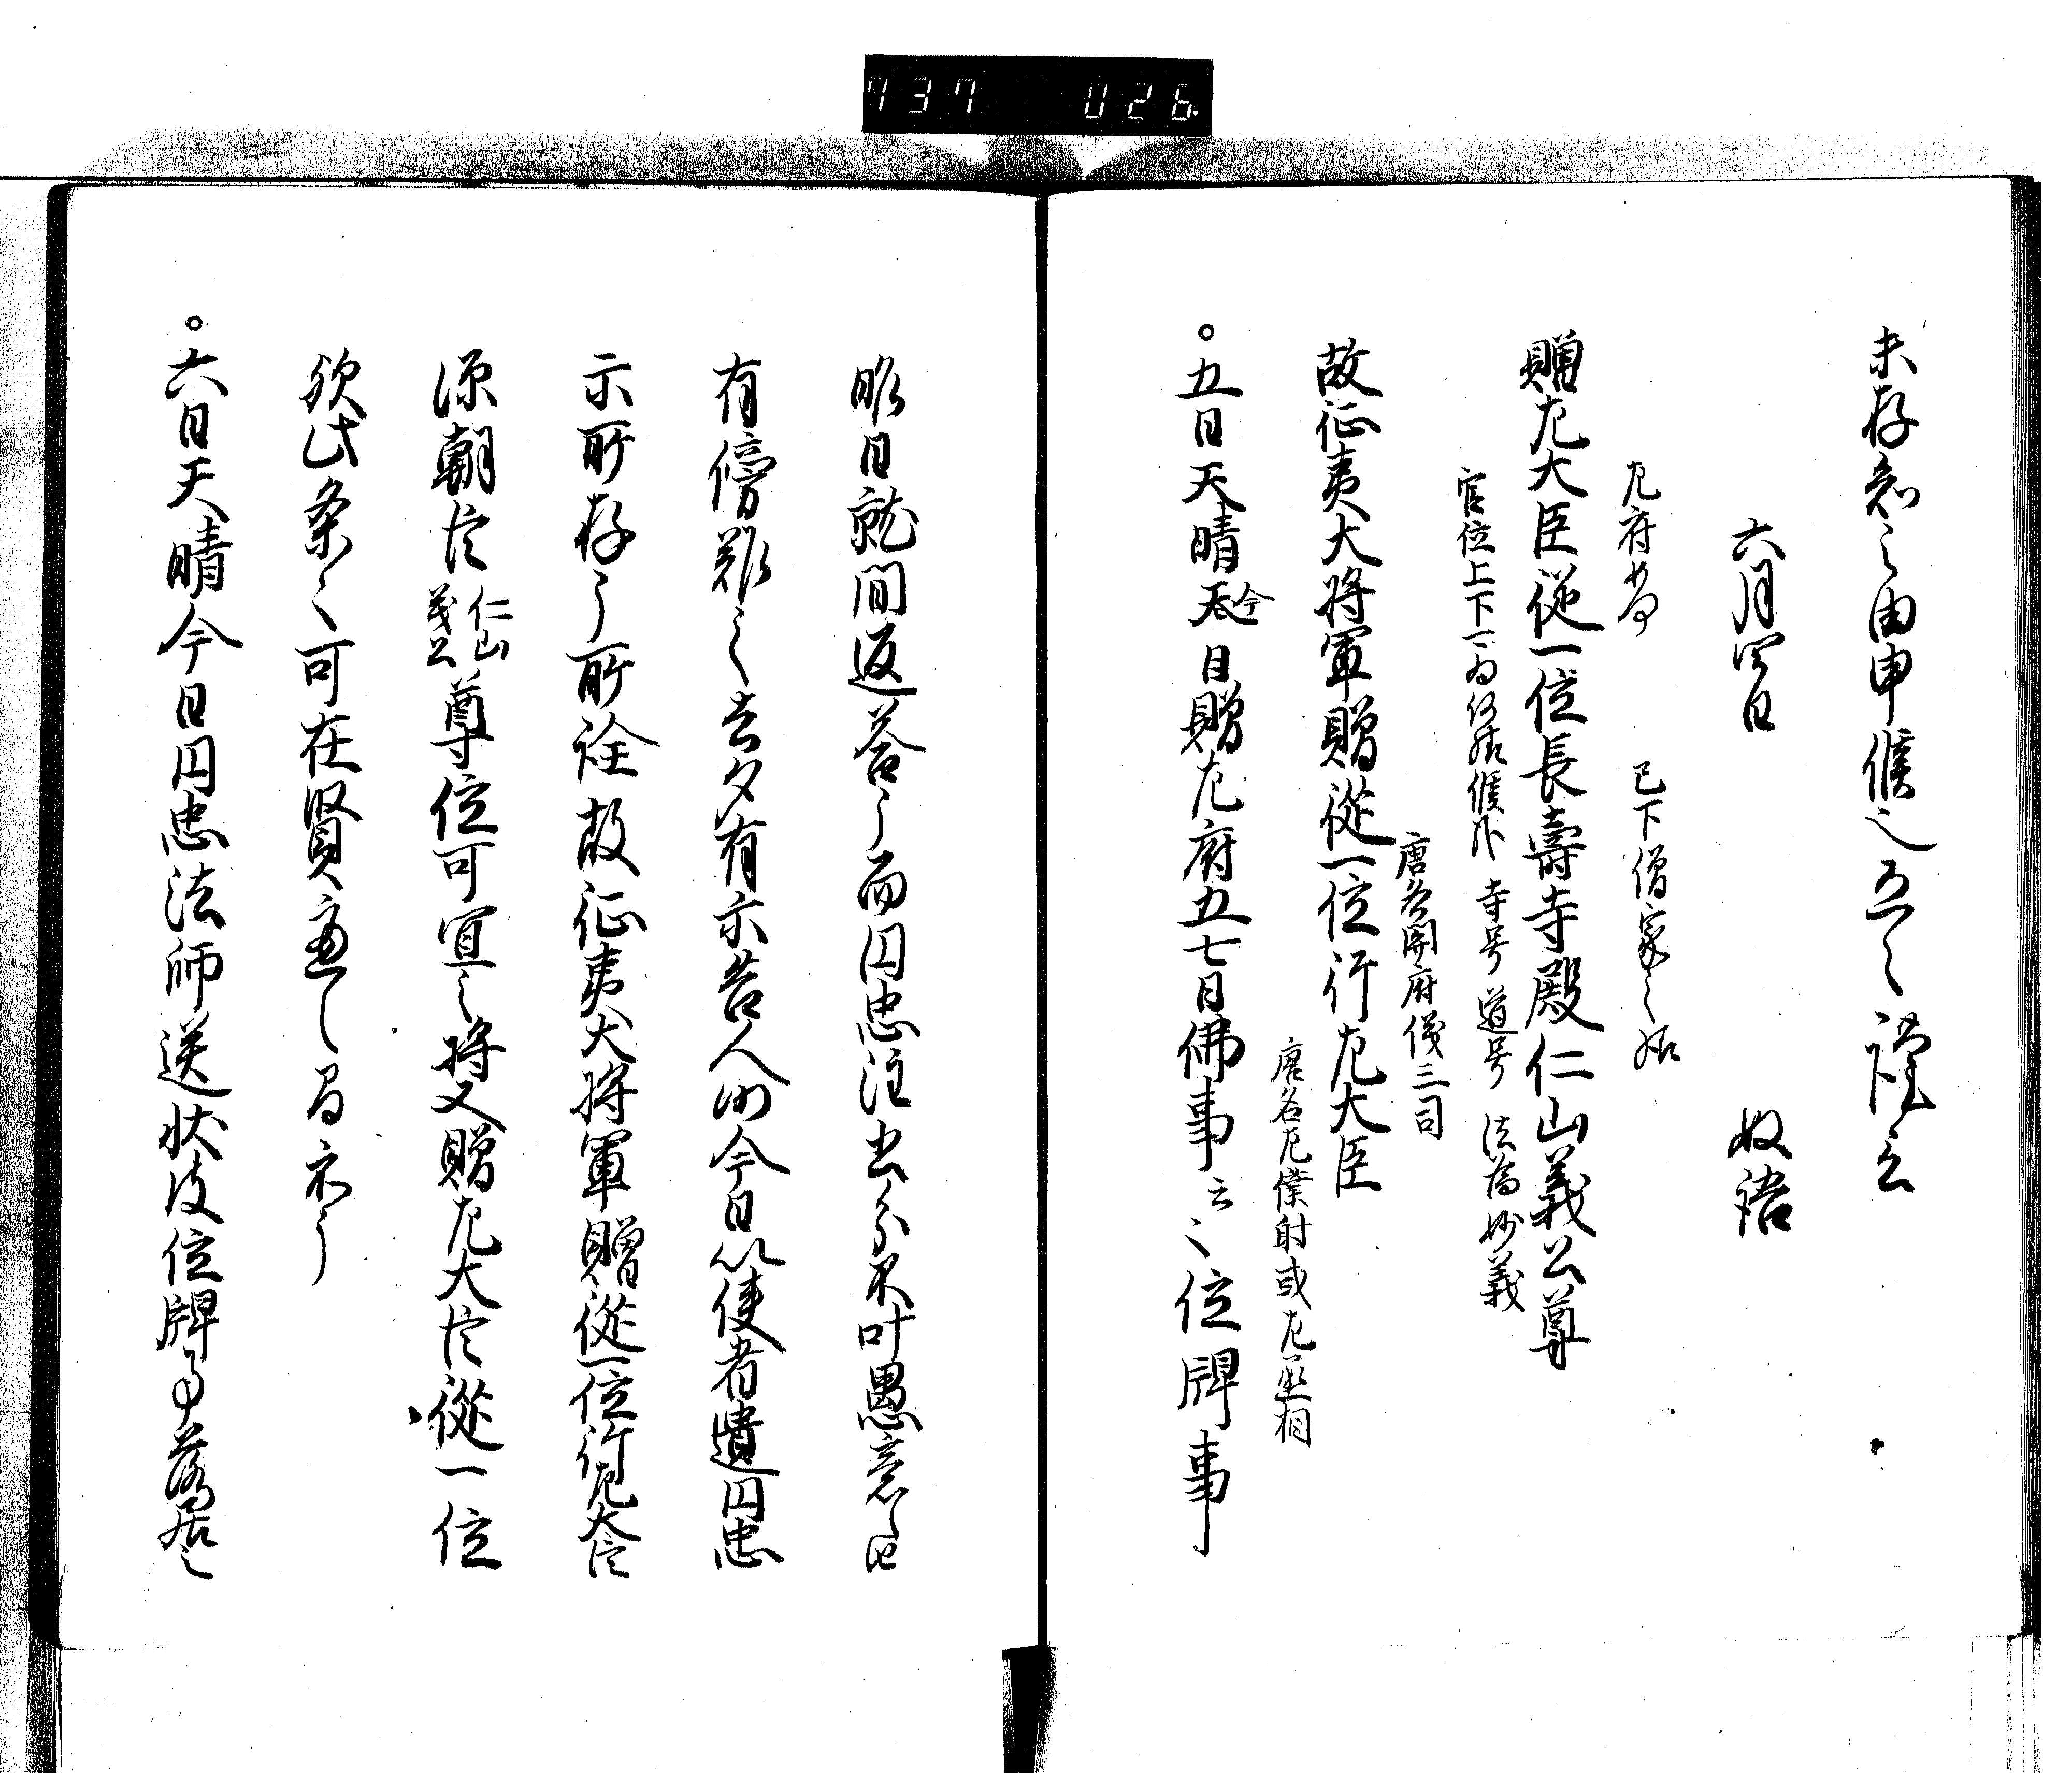 737 026
未存知之由申候之
六月四日
左府
已下僧家之
贈左大臣従一位長壽寺殿仁山義公尊
官位上下 寺号 道号 法 妙義
唐名開府儀三司
故征夷大将軍贈従一位行左大臣
唐名左僕射或左丞相
。五日天晴今日贈左府五七日佛事云々位牌事
昨日就間返答了而円忠注出分不叶愚意
有傍難之去夕有示告人今日以使者遣円忠
示所存了所詮故征夷大将軍贈従一位行左大臣
源朝臣仁山義公尊位可宜之将又贈左大臣従一位
欤此条々可在賢慮示了
。六日天晴今日円忠法師送状彼位牌事落居之